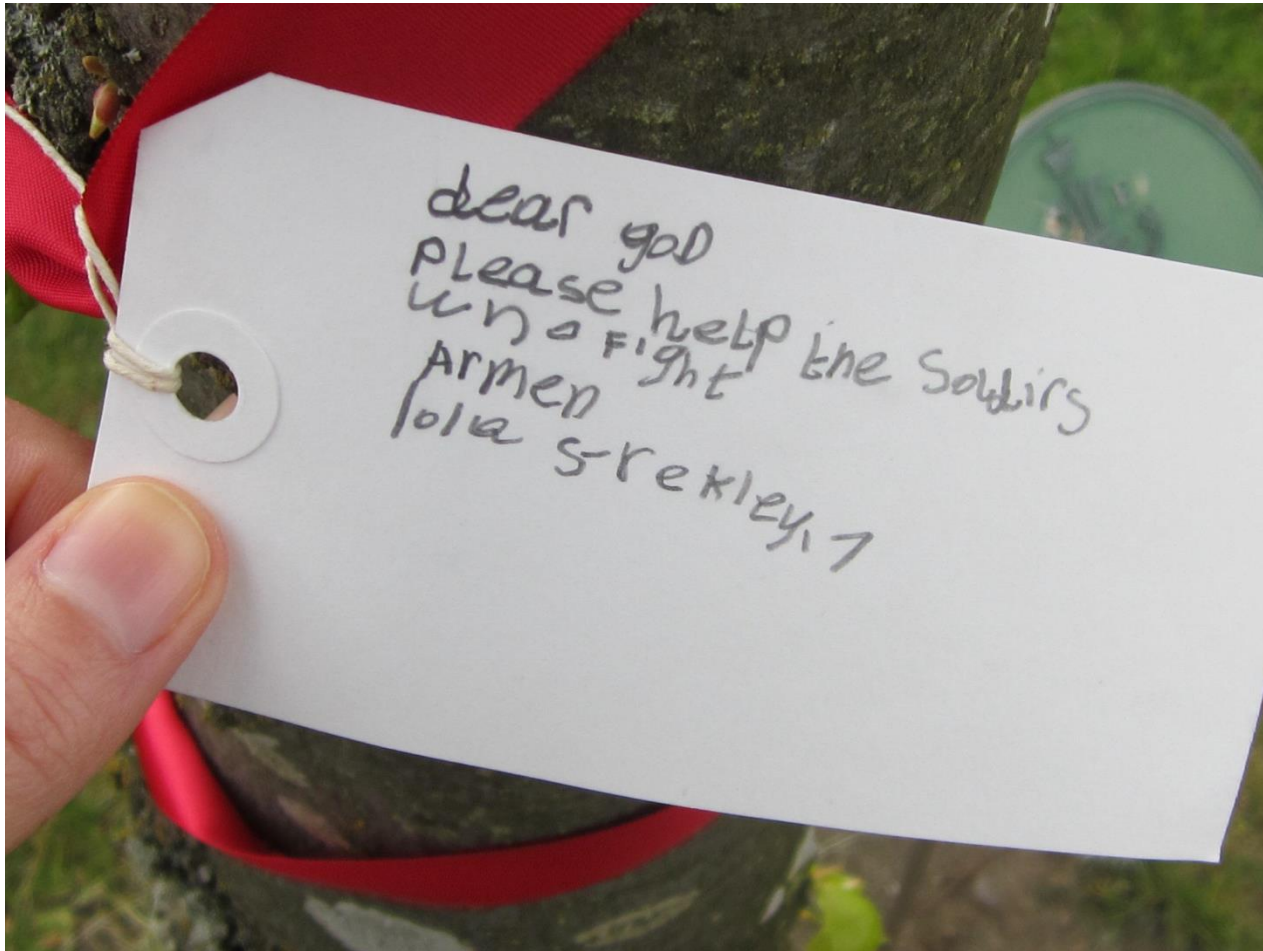 dear goD
PLease help the Soldirs
who Fight
Armen
lola Strekley, 7